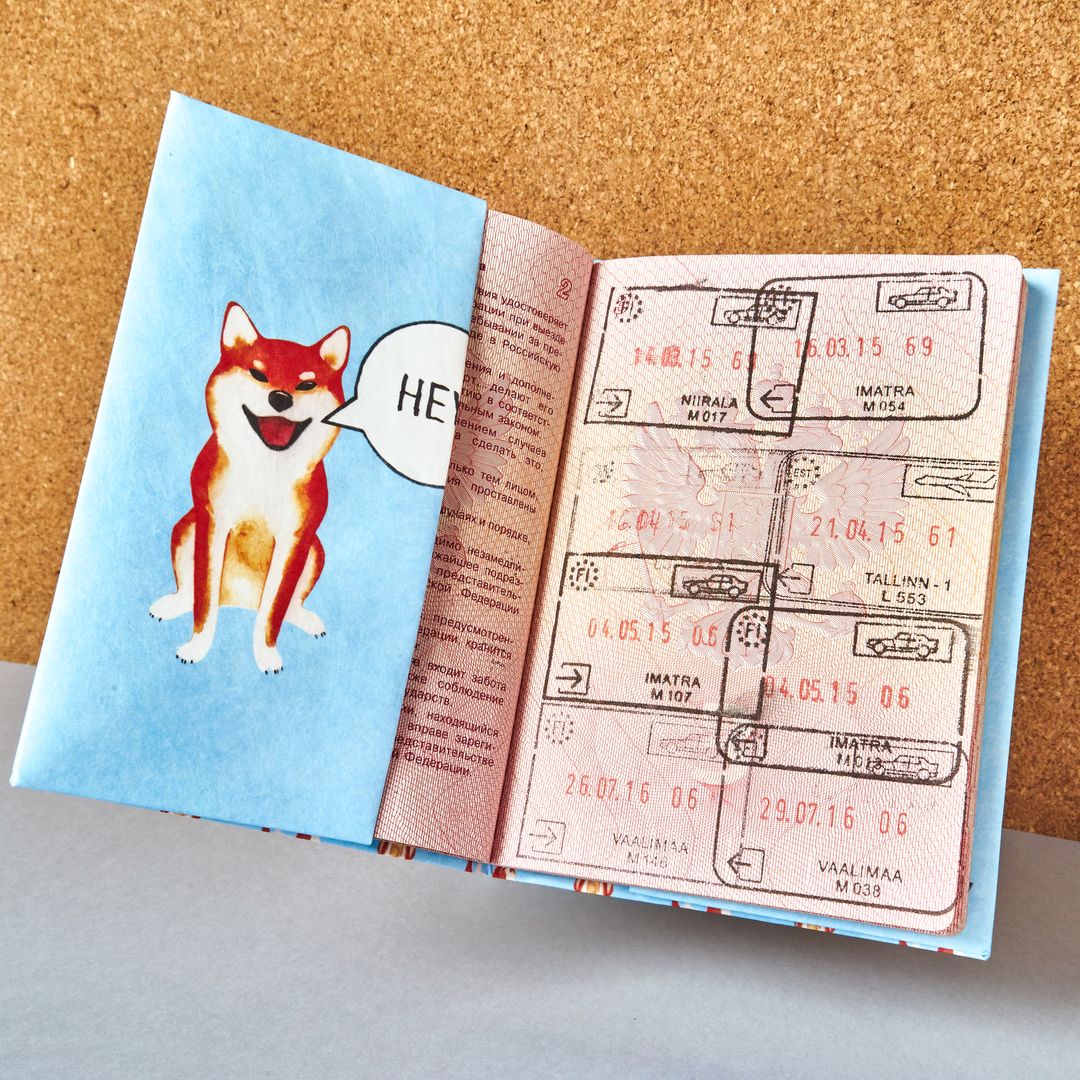 HEY
2
ния удостоверяет
ции при выезде
ебывании за пре-
де в Российскую
ения и дополне-
рт, делают его
тию в соответст-
льным законом.
нением случаев
а сделать это.
олько тем лицом,
ия проставлены
лучаях и порядке,
димо незамедли-
жайшее подраз-
представитель-
кой Федерации
предусмотрен-
ерации, хранится
е, входит забота
кже соблюдение
ударств.
и, находящийся
вправе зареги-
дставительстве
й Федерации.
FI
14.03.15 69
NIIRALA
M 017
16.03.15 69
IMATRA
M 054
16.04.15 61
EST
21.04.15 61
TALLINN - 1
L 553
FI
04.05.15 06
IMATRA
M 107
FI
04.05.15 06
IMATRA
26.07.16 06
VAALIMAA
M 146
29.07.16 06
VAALIMAA
M 038